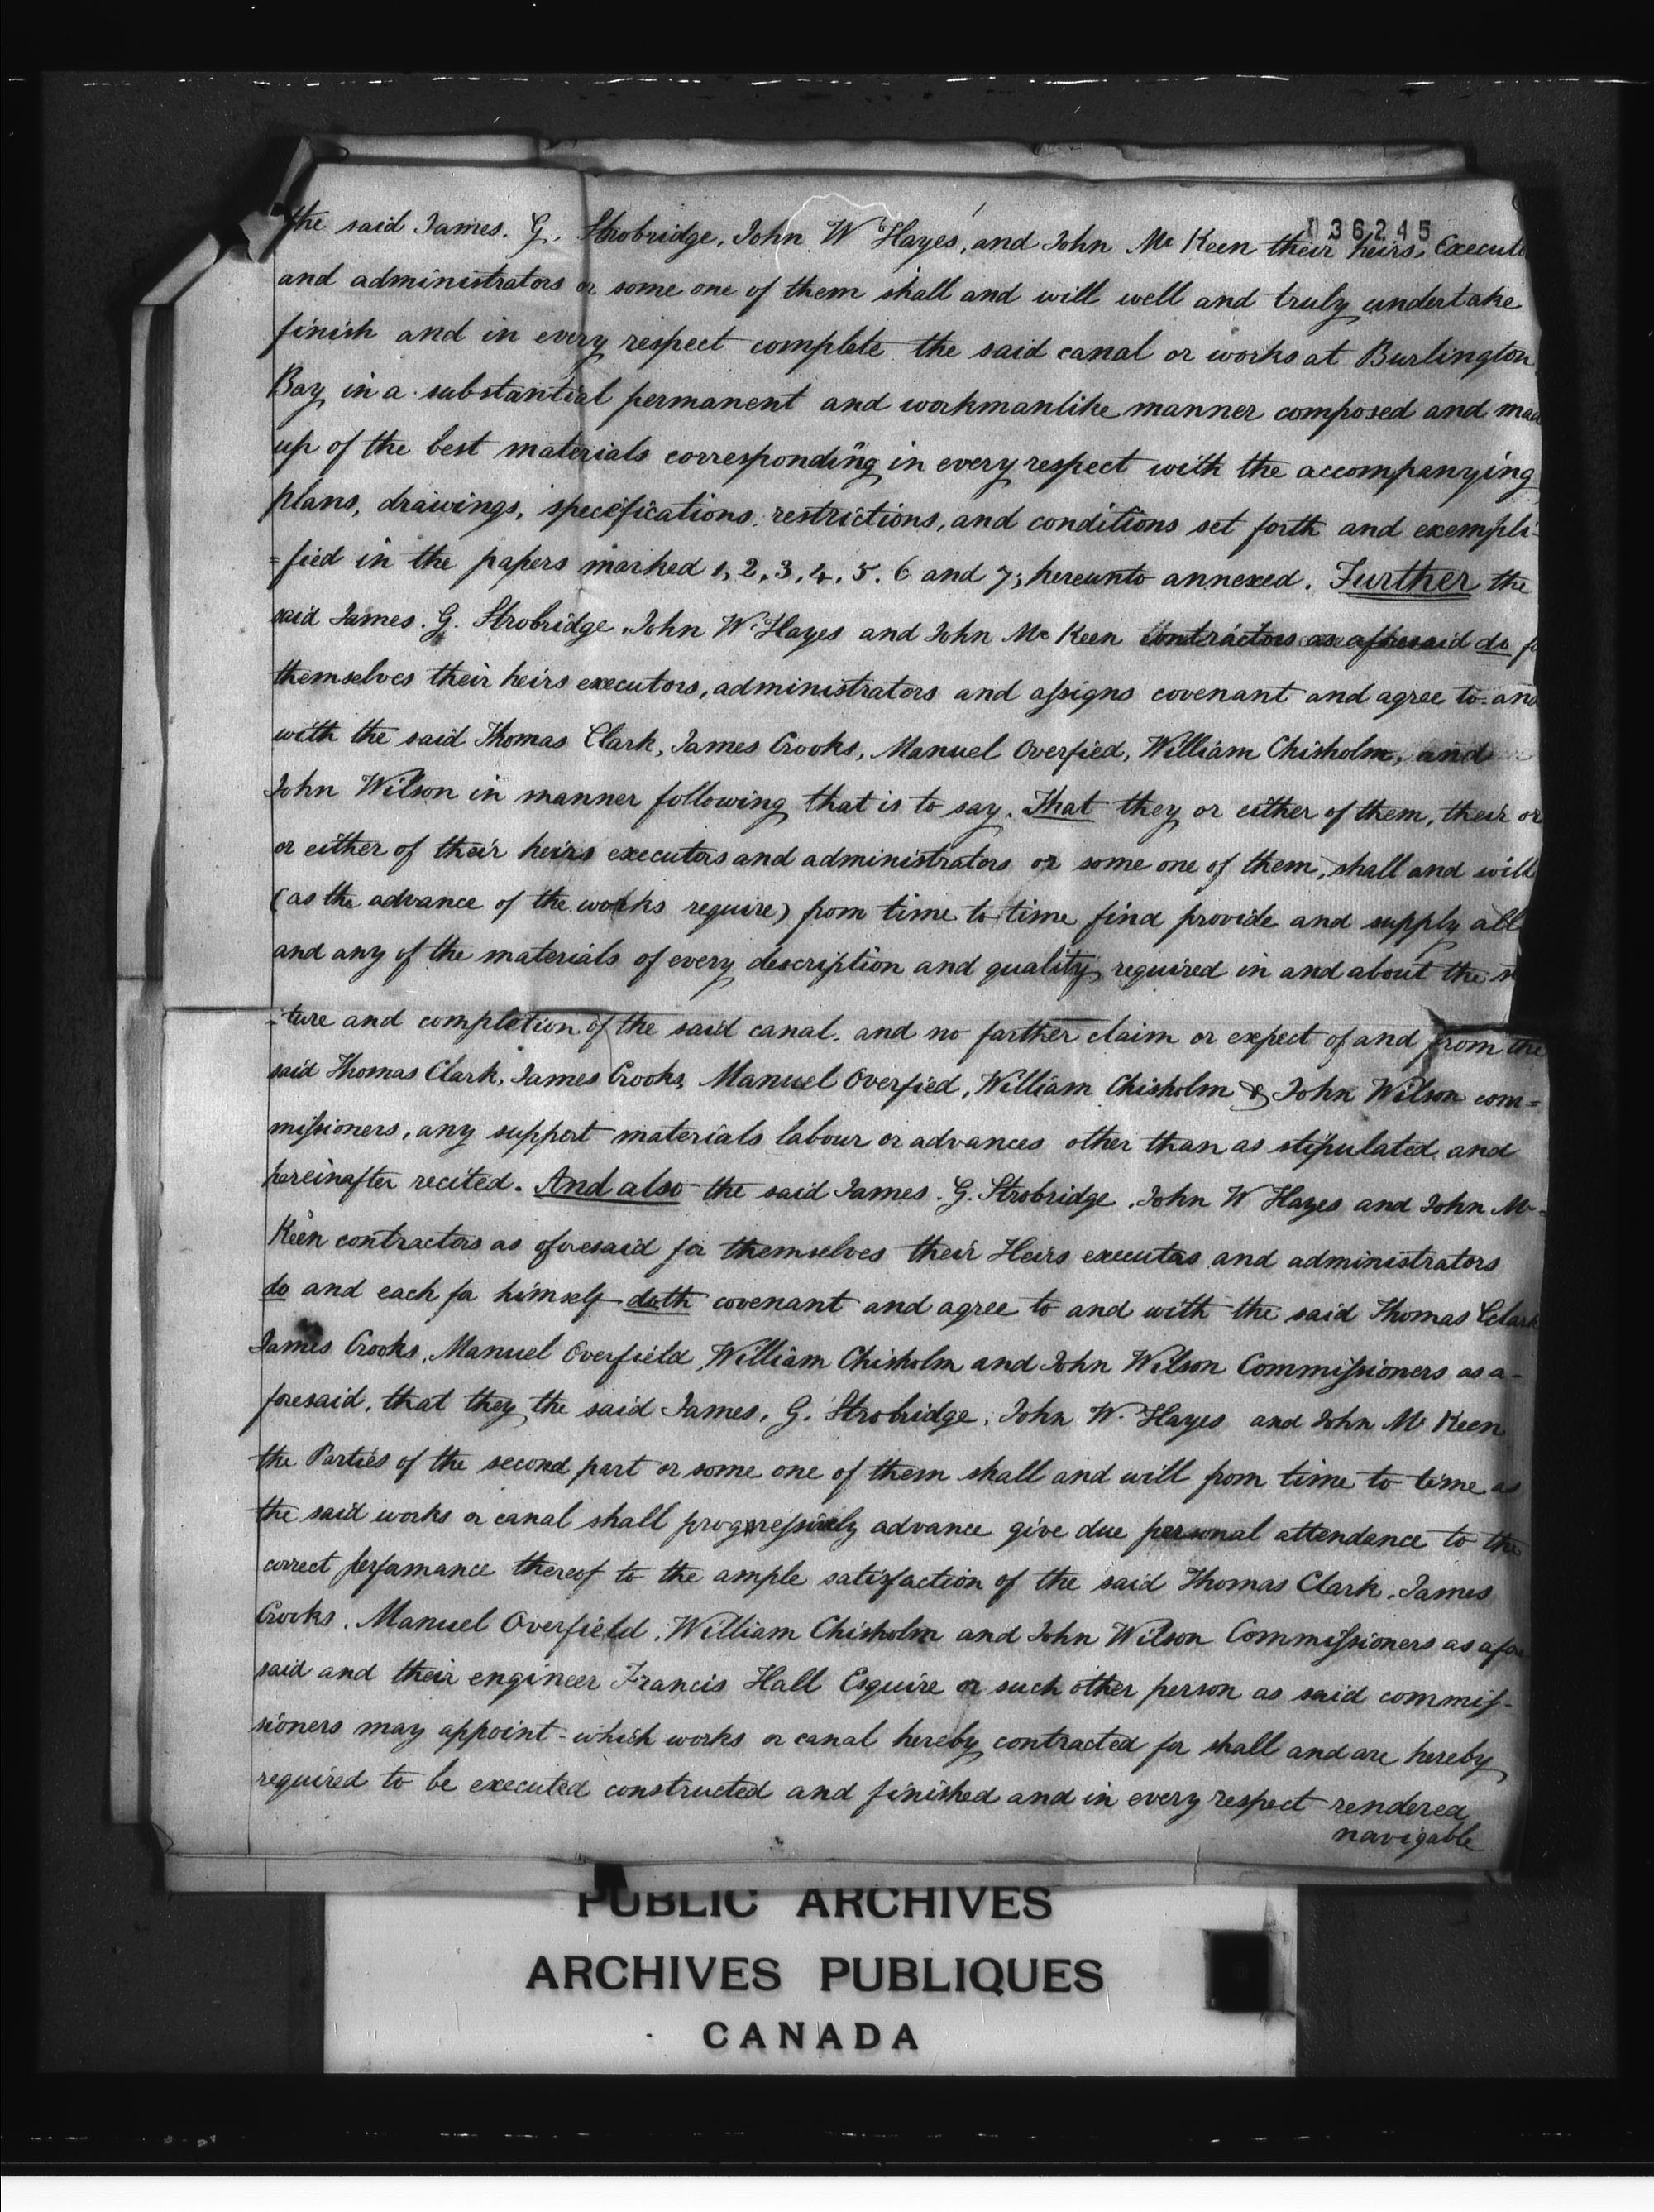 036245
the said James. G. Strobridge, John W Hayes, and John Mc Keen their heirs, Execut
and administrators or some one of them shall and will well and truly undertake
finish and in every respect complete the said canal or works at Burlington
Bay in a substantial permanent and workmanlike manner composed and mad
up of the best materials corresponding in every respect with the accompanying
plans, drawings, specifications, restrictions, and conditions set forth and exempli-
=fied in the papers marked 1, 2, 3, 4, 5. 6 and 7, hereunto annexed. Further the
said James. G. Strobridge, John W. Hayes and John Mc Keen contractors as aforesaid do fo
themselves their heirs executors, administrators and assigns covenant and agree to and
with the said Thomas Clark, James Crooks, Manuel Overfied, William Chisholm, and
John Wilson in manner following that is to say. That they or either of them, their or
or either of their heirs executors and administrators or some one of them, shall and will
(as the advance of the works require) from time to time find provide and supply all
and any of the materials of every description and quality required in and about the
-ture and completion of the said canal, and no farther claim or expect of and from the
said Thomas Clark, James Crooks, Manuel Overfied, William Chisholm & John Wilson com=
missioners, any support materials labour or advances other than as stipulated and
hereinafter recited. And also the said James. G. Strobridge, John W Hayes and John Mc=
Keen contractors as aforesaid for themselves their Heirs executors and administrators
do and each for himself doth covenant and agree to and with the said Thomas Clark
James Crooks, Manuel Overfield William Chisholm and John Wilson Commissioners as a-
foresaid, that they the said James, G. Strobridge, John W. Hayes and John Mc Keen
the Parties of the second part or some one of them shall and will from time to time as
the said works or canal shall progressively advance give due personal attendance to the
correct performance thereof to the ample satisfaction of the said Thomas Clark, James
Crooks, Manuel Overfield, William Chisholm and John Wilson Commissioners as afore
said and their engineer Francis Hall Esquire or such other person as said commis-
sioners may appoint - which works or canal hereby contracted for shall and are hereby
required to be executed constructed and finished and in every respect rendered
navigable
PUBLIC ARCHIVES
ARCHIVES PUBLIQUES
CANADA